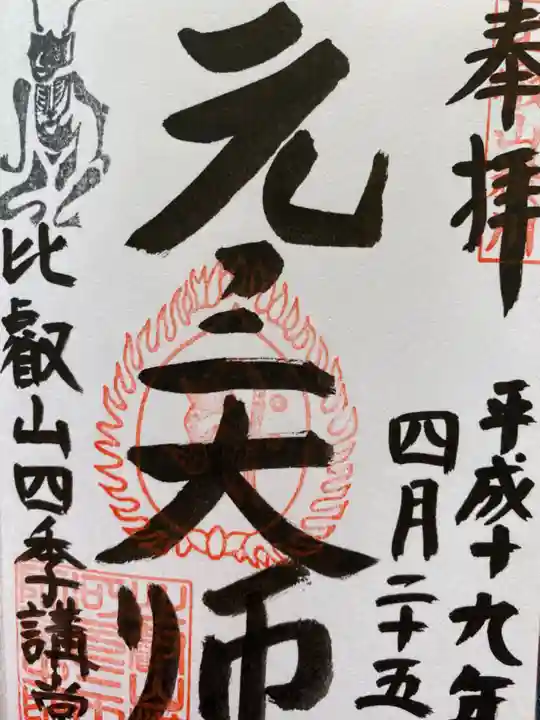 奉拝
平成十九年
四月二十五
元三大師
比叡山四季講堂